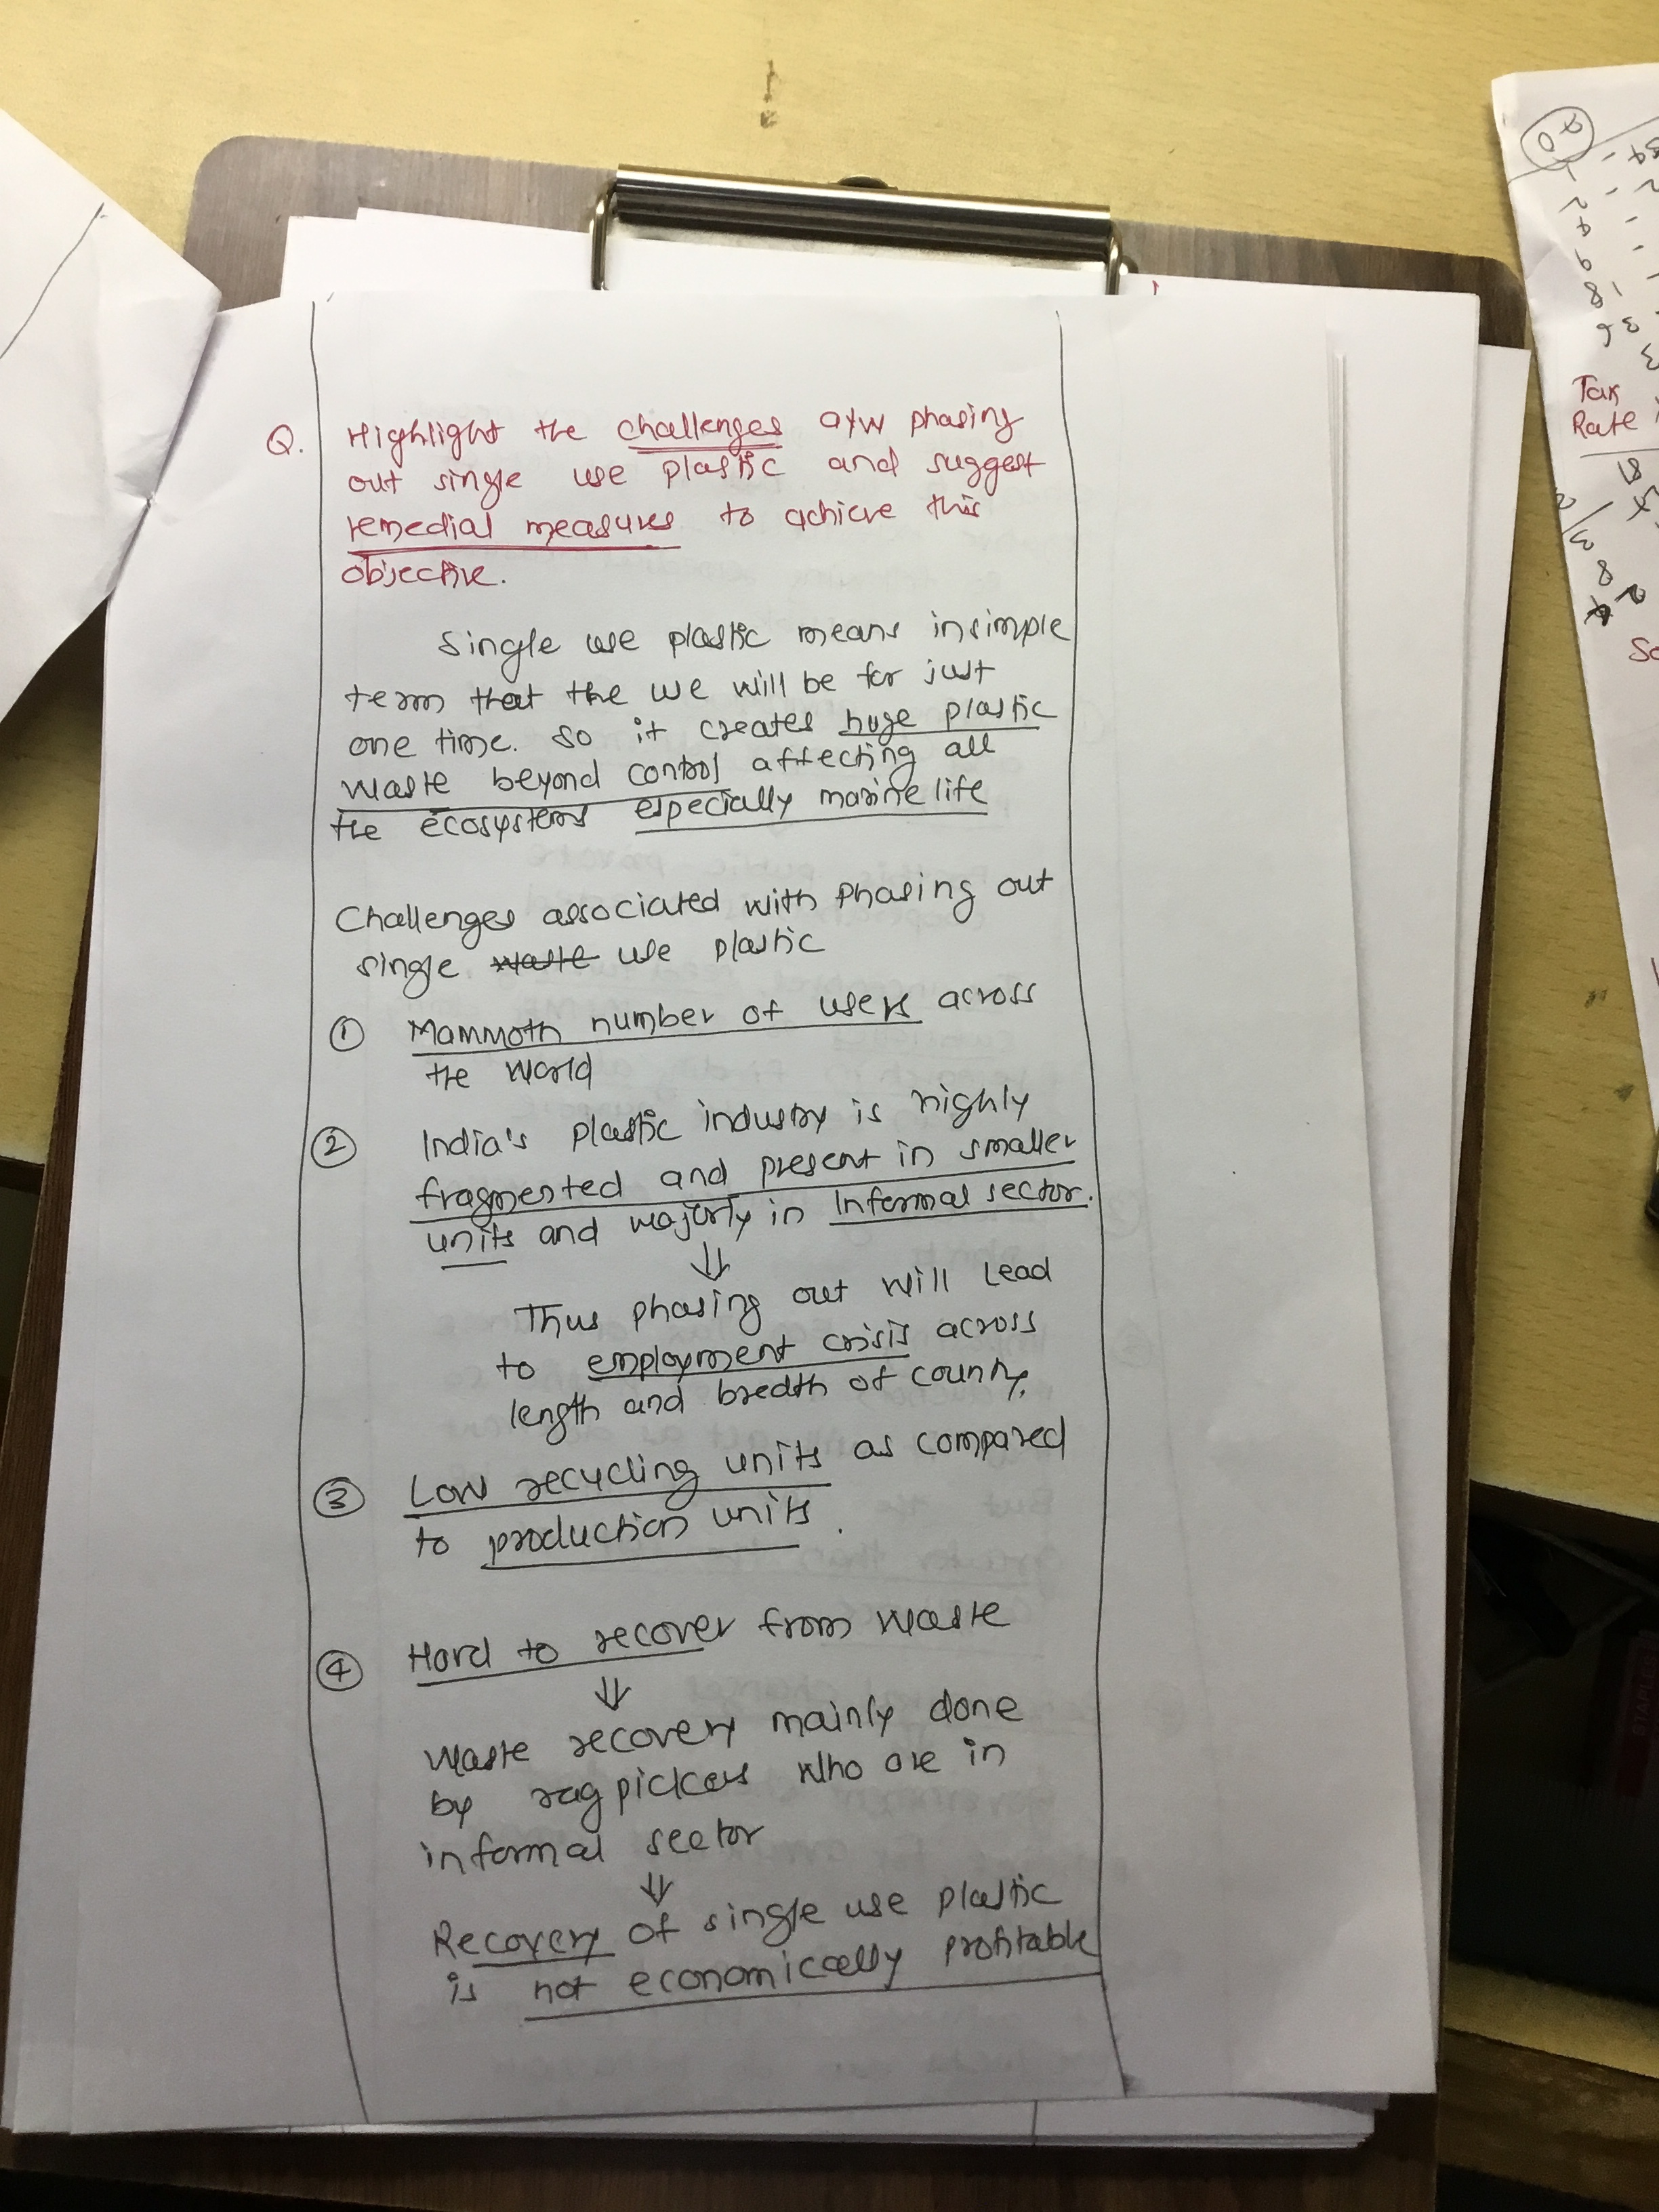 Q. Highlight the challenges a/w phasing
out single use plastic and suggest
remedial measures to achieve this
objective.
Single use plastic means in simple
term that the use will be for just
one time. So it creates huge plastic
waste beyond control affecting all
the ecosystems especially marine life
Challenges associated with Phasing out
single waste use plastic
① Mammoth number of users across
the world
② India's plastic industry is highly
fragmented and present in smaller
units and majorly in Informal sector.
⇓
Thus phasing out will Lead
to employment crisis across
length and bredth of country.
③ Low recycling units as compared
to production units.
④ Hard to recover from waste
⇓
Waste recovery mainly done
by rag pickers who are in
informal sector
⇓
Recovery of single use plastic
is not economically profitable
70
Tax
Rate
STAPLES